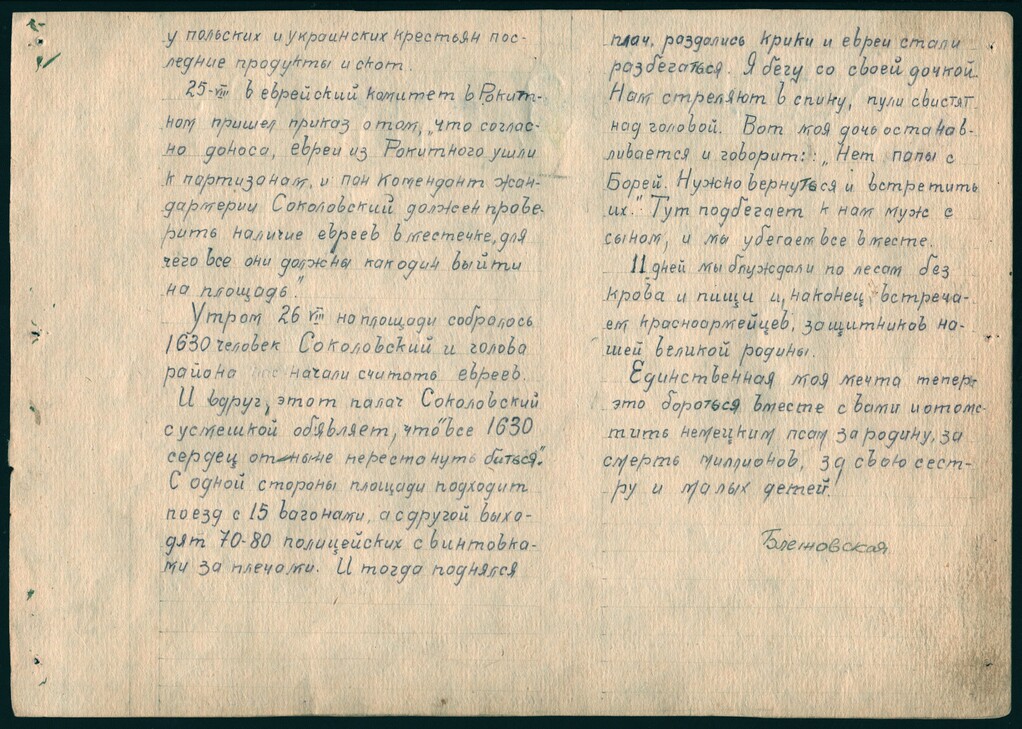 у польских и украинских крестьян пос-
ледние продукты и скот.
25-VIII в еврейский комитет в Рокит-
ном пришел приказ о том, „что соглас-
но доноса, евреи из Рокитного ушли
к партизанам, и пан комендант жан-
дармерии Соколовский должен прове-
рить наличие евреев в местечке, для
чего все они должны как один выйти
на площадь".
Утром 26 VIII на площади собралось
1630 человек Соколовский и голова
района начали считать евреев.
И вдруг, этот палач Соколовский
с усмешкой объявляет, что "все 1630
сердец отныне перестануть биться".
С одной стороны площади подходит
поезд с 15 вагонами, а с другой выхо-
дят 70-80 полицейских с винтовка-
ми за плечами. И тогда поднялся
плач, раздались крики и евреи стали
разбегаться. Я бегу со своей дочкой.
Нам стреляют в спину, пули свистят
над головой. Вот моя дочь останав-
ливается и говорит: „Нет папы с
Борей. Нужно вернуться и встретить
их." Тут подбегает к нам муж с
сыном, и мы убегаем все вместе.
11 дней мы блуждали по лесам без
крова и пищи и, наконец встреча-
ем красноармейцев, защитников на-
шей великой родины.
Единственная моя мечта теперь
это бороться вместе с вами и отомс-
тить немецким псам за родину, за
смерть миллионов, за свою сест-
ру и малых детей.